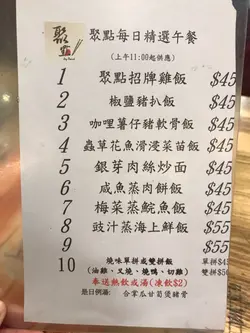 聚點每日精選午餐
(上午11:00起供應)
1 聚點招牌雞飯 $45
2 椒鹽豬扒飯 $45
3 咖哩薯仔豬軟骨飯 $45
4 蟲草花魚滑浸菜苗飯 $45
5 銀芽肉絲炒面 $45
6 咸魚蒸肉餅飯 $45
7 梅菜蒸鯇魚飯 $45
8 豉汁蒸海上鮮飯 $55
9 $55
10 燒味單拼或雙拼飯 單拼$45
(油雞、叉燒、燒鴨、切雞) 雙拼$50
奉送熱飲或湯(凍飲$2)
是日例湯: 合掌瓜甘筍煲豬骨